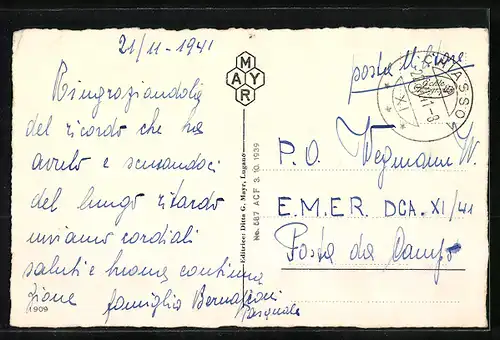 21/11-1941
Ringraziandola
del ricordo che ha
avuto e scusandoci
del lungo ritardo
inviamo cordiali
saluti e buona continua
zione famiglia Bernasconi
Pasquale
1909
MAYR
Editrice: Ditta G. Mayr, Lugano
No. 587 ACF 3. 10. 1939
posta Militare
CHIASSO
XI
P.O. Wegmann W.
E.M.E.R. DCA. XI/41
Posta da Campo